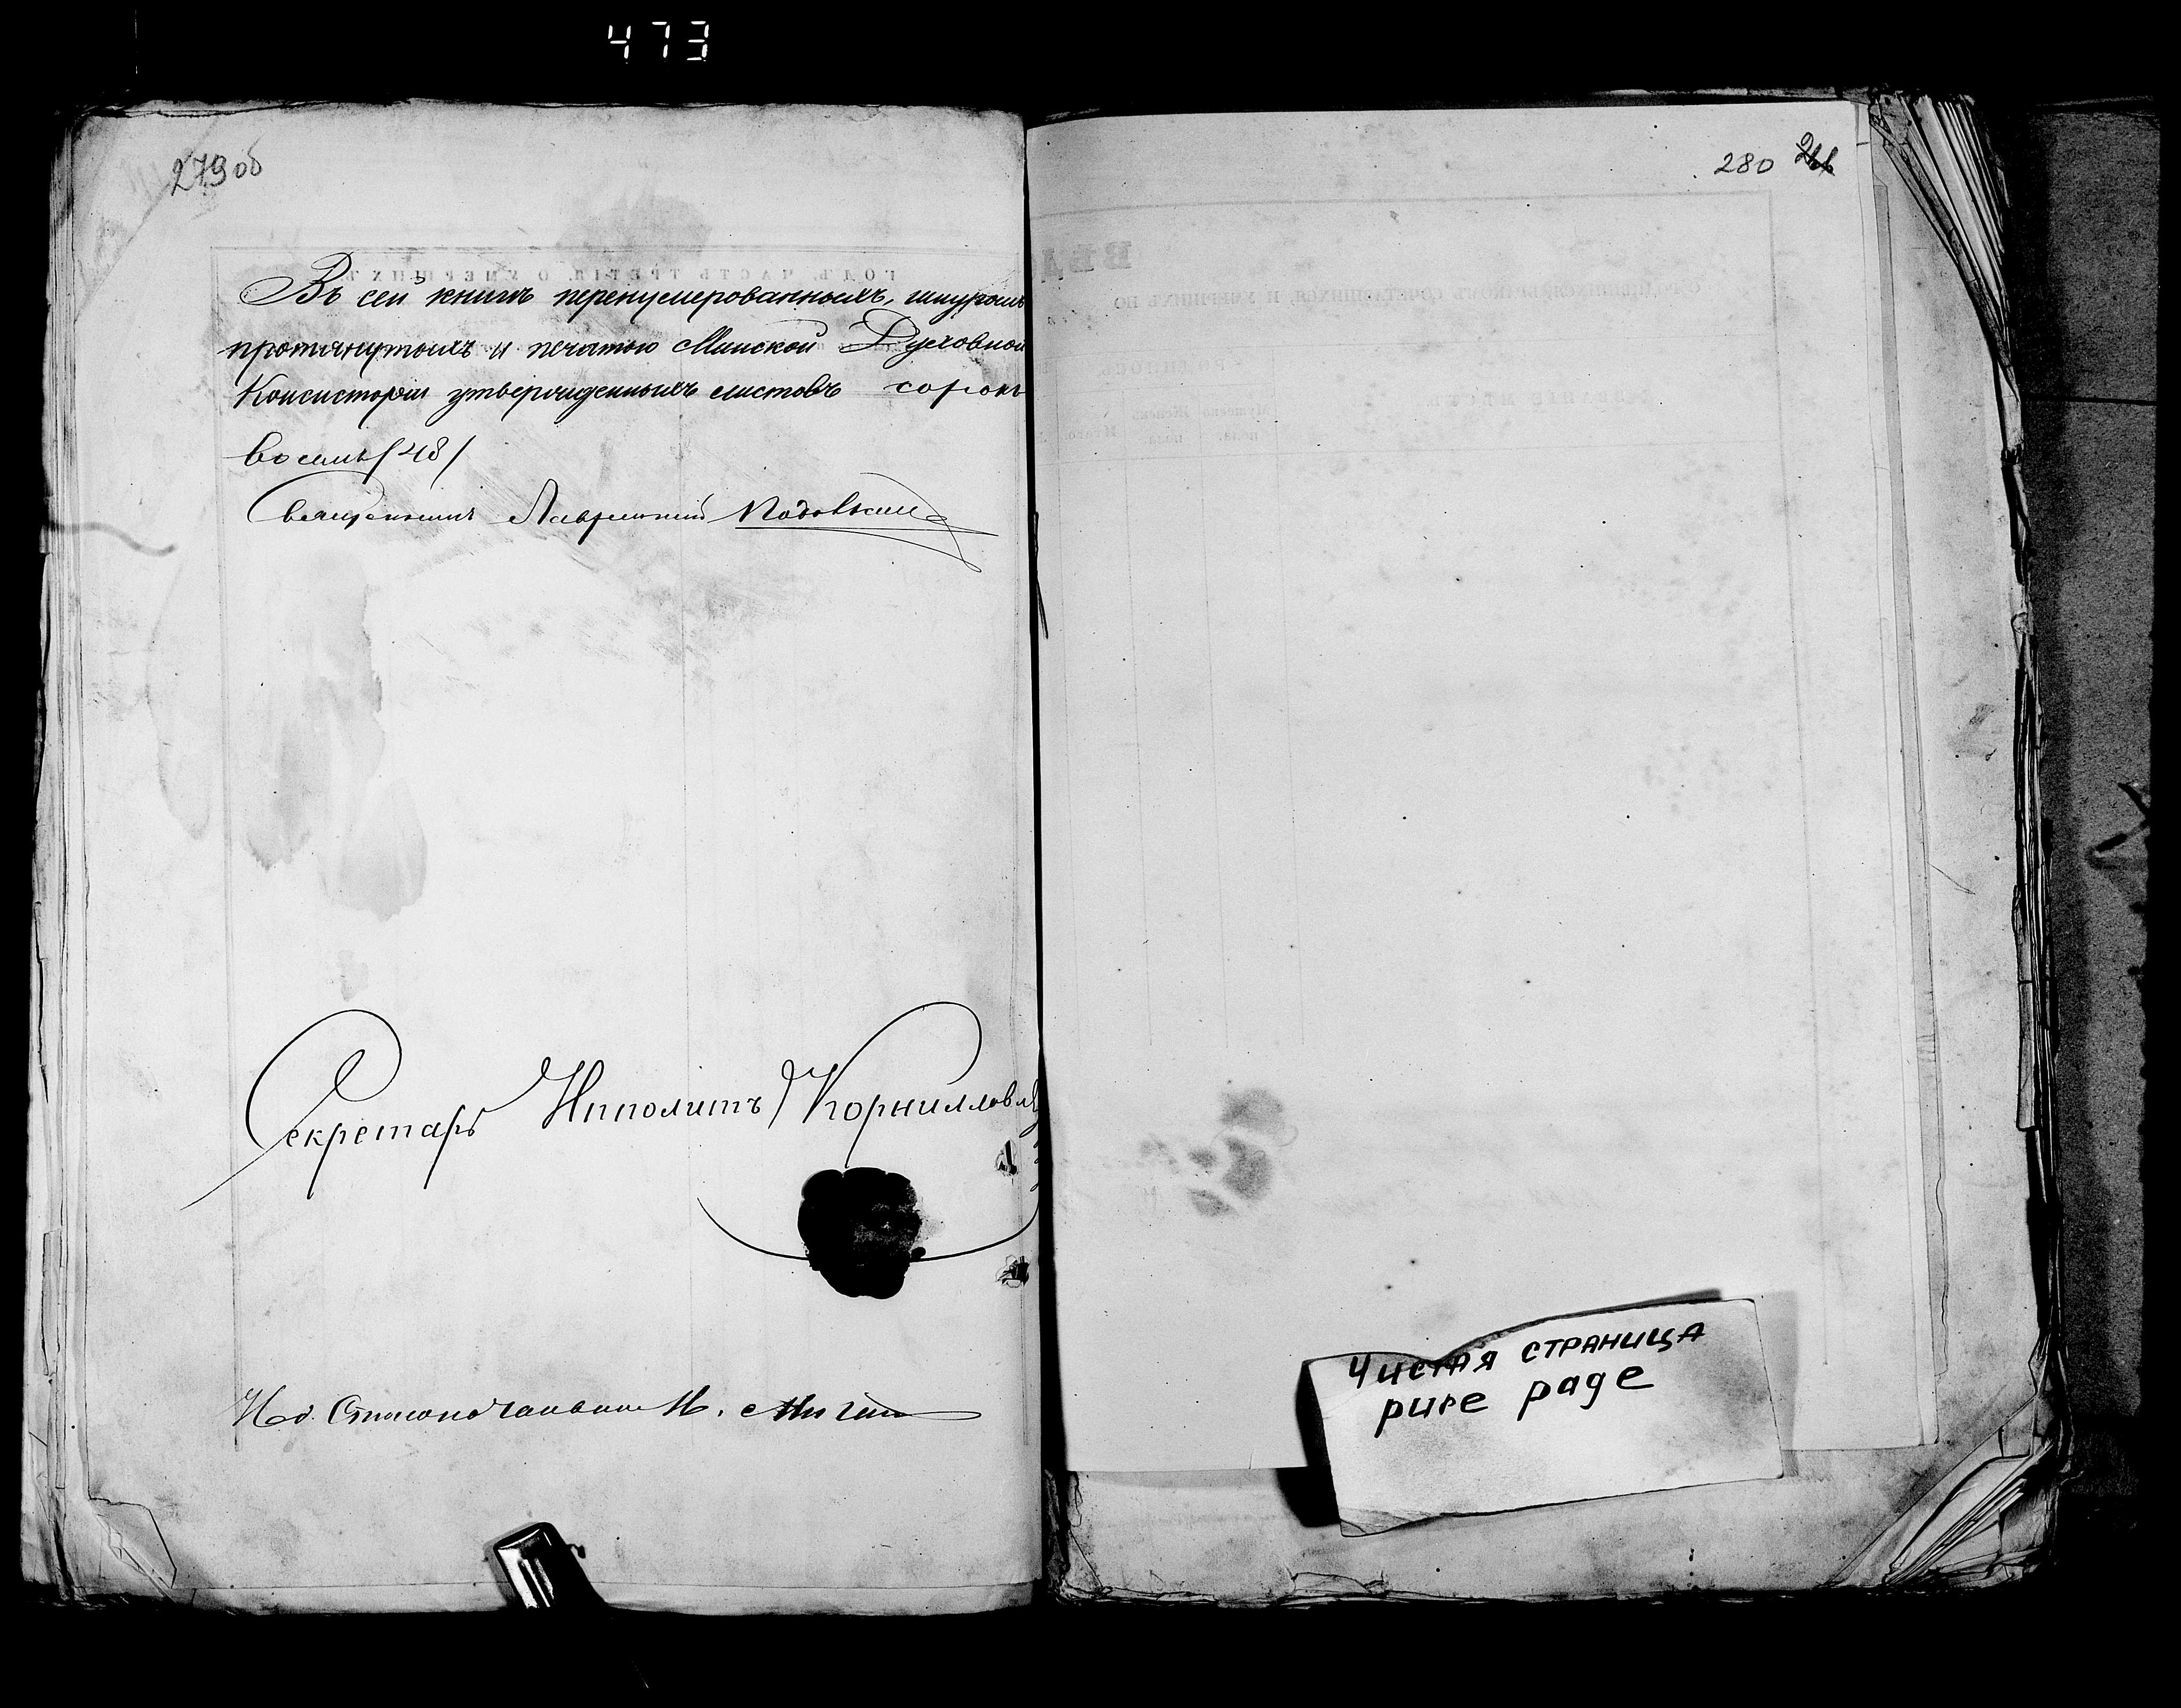 473
279 об
Въ сей книгѣ перенумерованныхъ, шнуромъ
протянутыхъ и печатью Минской Духовной
Консисторіи утвержденныхъ листовъ сорокъ
восемь (48)
Священникъ Лаврентій
Секретарь Ипполитъ Корнилловъ
И. д. Столоначальника Н.
280
ГОДЪ, ЧАСТЬ ТРЕТЬЯ, О УМЕРШИХЪ
Чистая страница
pure page